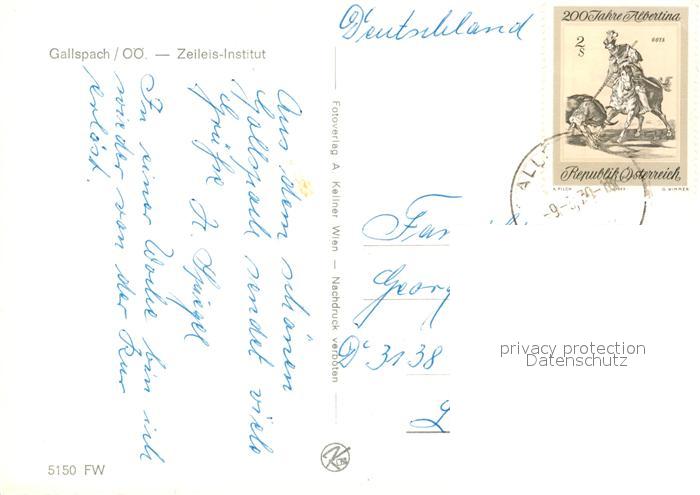 Gallspach / OÖ. — Zeileis-Institut
Aus dem schönen
Gallspach sendet viele
Grüße H. Spiegel
In einer Woche bin ich
wieder von der Kur
erlöst.
5150 FW
Fotoverlag A. Kellner Wien — Nachdruck verboten
Deutschland
200 Jahre Albertina
2 S
GOYA
Republik Österreich
A. PILCH 1969 G. WIMMER
ALL
-9-
Fam
Georg
D 3138
privacy protection
Datenschutz